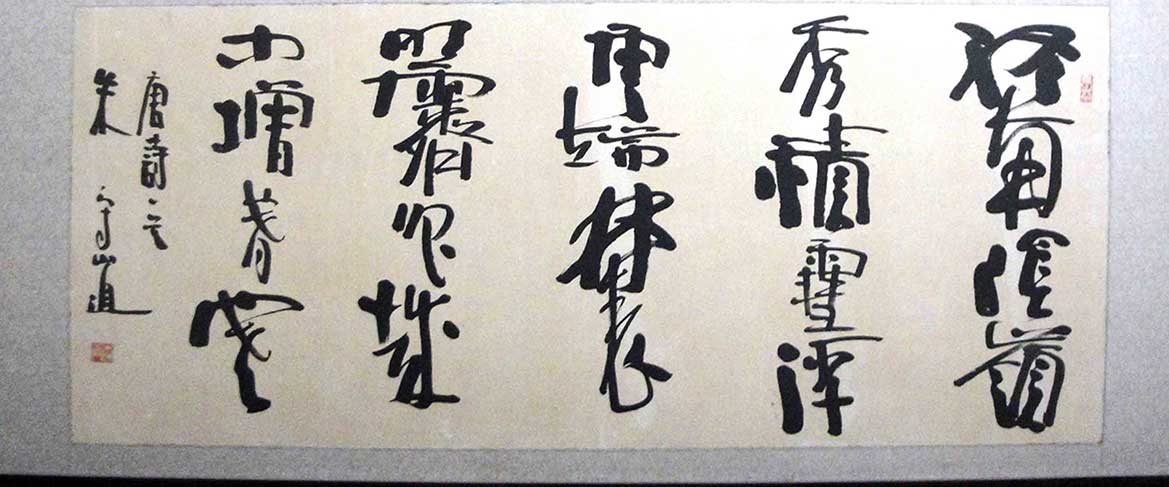 終南陰嶺
秀積雪浮
雲端林表
明霽色城
中增暮寒
唐詩
朱守道